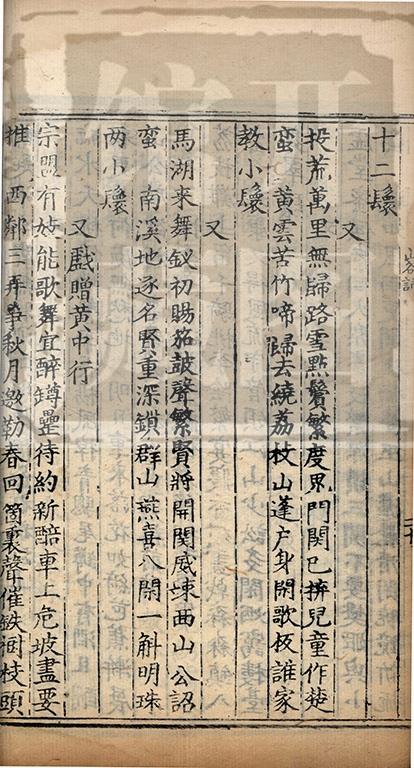 十二鬟
又
投荒萬里無歸路雪點鬢繁度鬼門關已拚兒童作楚
蠻 黄雲苦竹啼歸去繞荔枝山蓬户身閒歌板誰家
教小鬟
又
馬湖来舞釵初賜笳皷聲繁賢將開関威竦西山公詔
蠻 南溪地逐名賢重深鎖群山燕喜公閒一斛明珠
两小鬟
又戲贈黄中行
宗盟有妓能歌舞宜醉罇罍待約新醅車上危坡盡要
推 西鄰三弄爭秋月邀勒春回箇裏聲催鉄樹枝頭
山谷詞